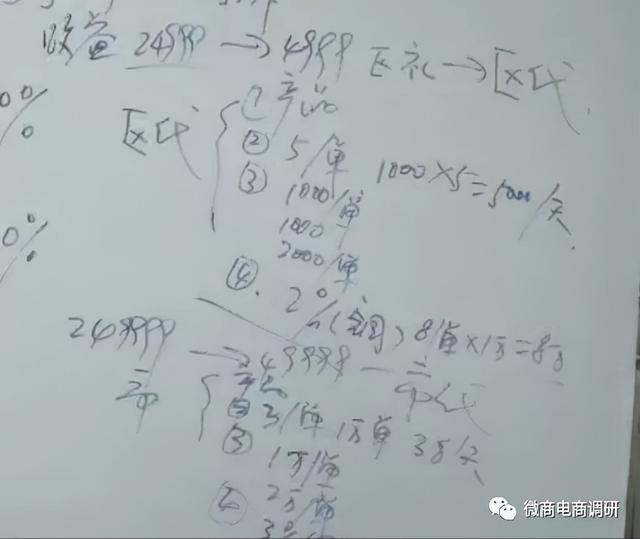 收益 24999 → 4999 区礼 → 区代
0%
区代
① 产品
② 5/单
③ 1000/单 1000×5=5000/天
1000
2000/单
④ 2%(全国) 8单×1万=8万
0%
249999 → 49999 — 市代
市
② 3/单 1万单 3万/天
③ 1万/单
④ 2万/单
微商电商调研